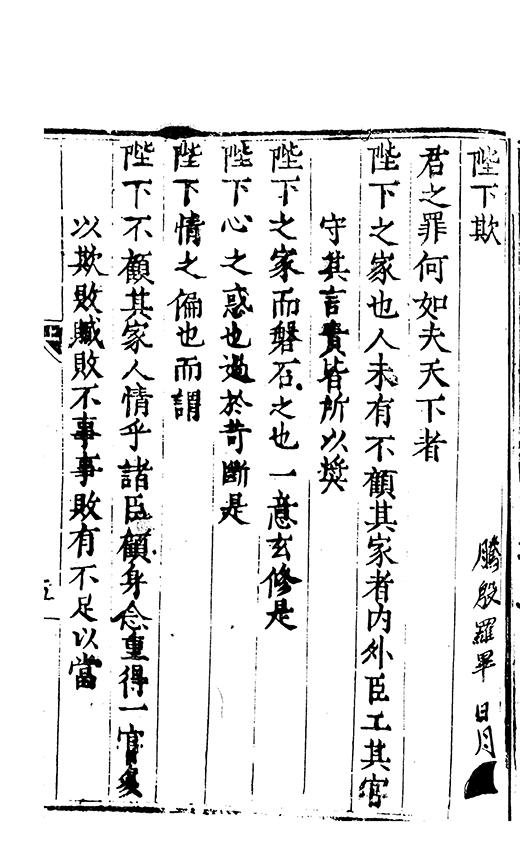 陛下欺
君之罪何如夫天下者
陛下之家也人未有不顧其家者內外臣工其官
守其言責皆所以奬
陛下之家而磐石之也一意玄修是
陛下心之惑也過於苛斷是
陛下情之偏也而謂
陛下不顧其家人情乎諸臣顧身念重得一官多
以欺敗贓敗不事事敗有不足以當